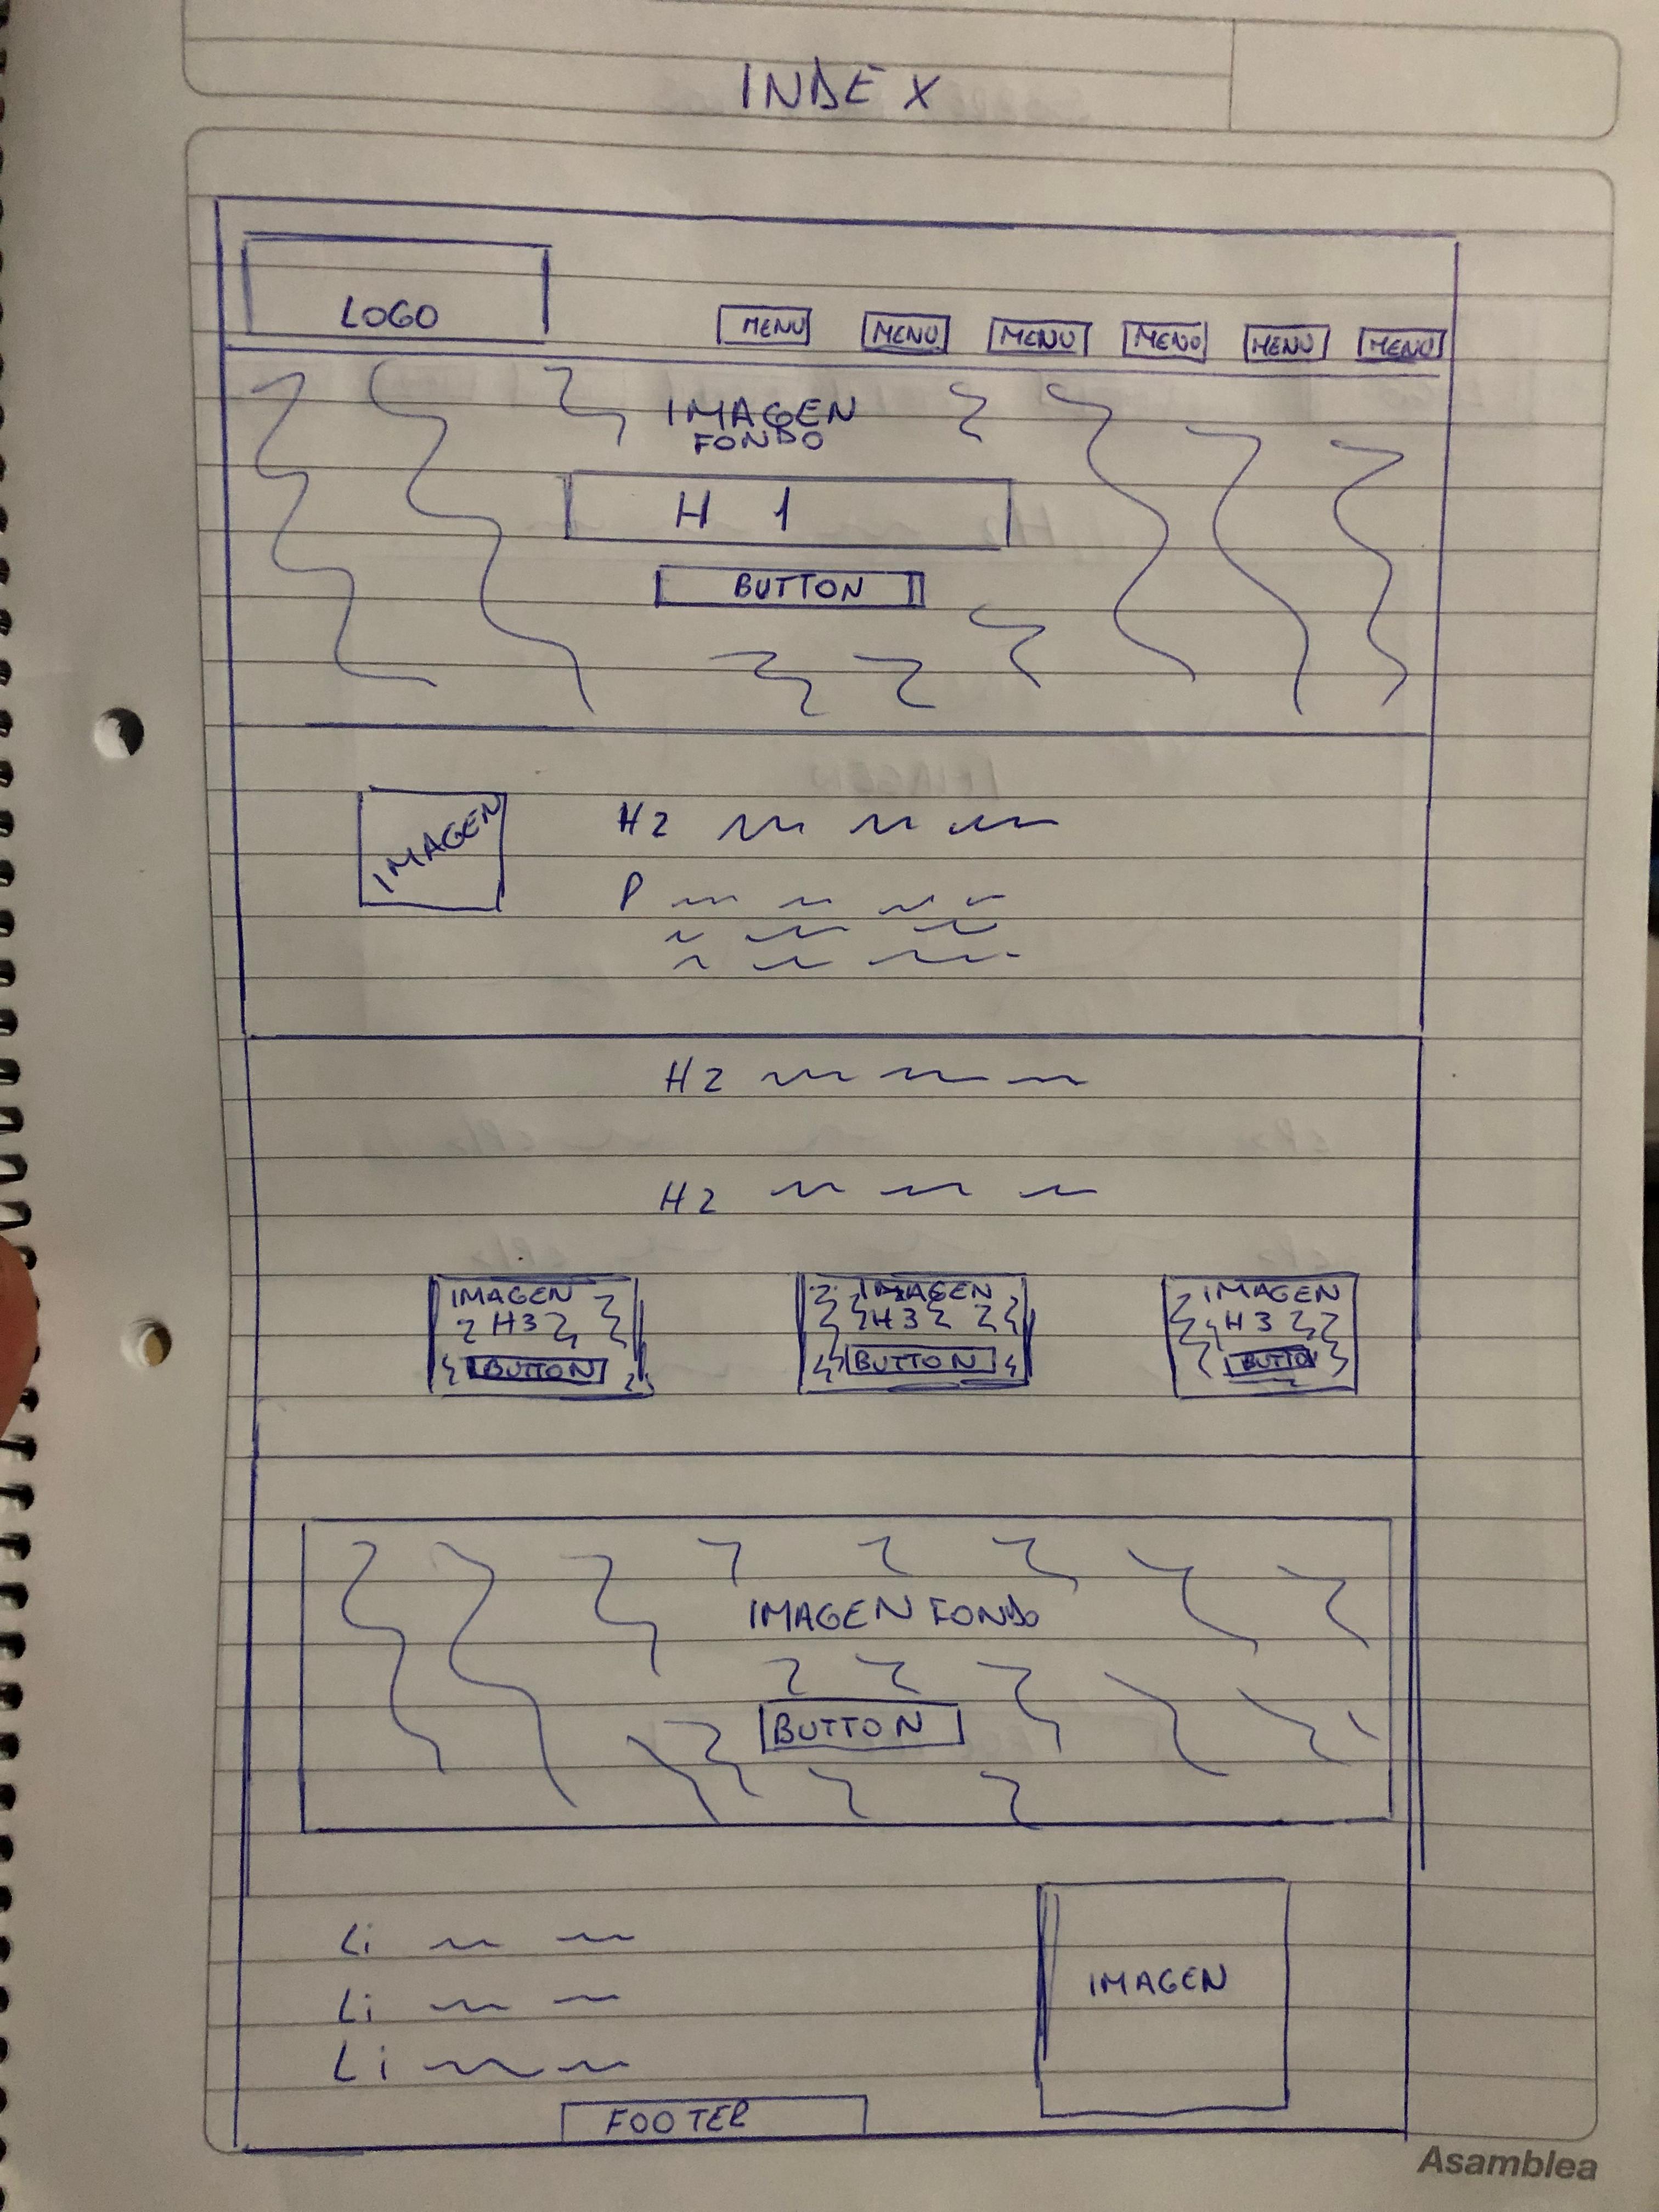 INDEX
LOGO
MENU MENU MENU MENU MENU MENU
IMAGEN
FONDO
H 1
BUTTON
IMAGEN
H2
P
H2
H2
IMAGEN IMAGEN IMAGEN
H3 H3 H3
BUTTON BUTTON BUTTO
IMAGEN FONDO
BUTTON
Li
Li
Li
IMAGEN
FOOTER
Asamblea